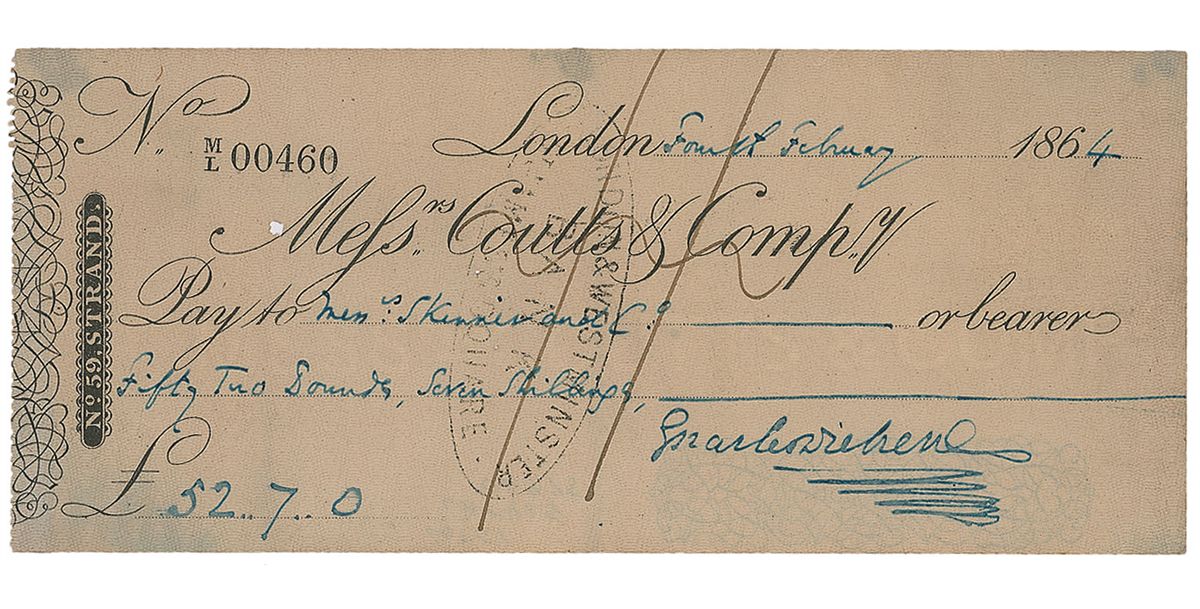 No. M/L 00460
London Fourth February 1864
Messrs. Coutts & Compy.
Pay to Messrs. Skinner and Co. or bearer
Fifty Two Pounds, Seven Shillings,
Charles Dickens
£ 52..7..0
No. 59, STRAND.
LONDON & WESTMINSTER
BANK